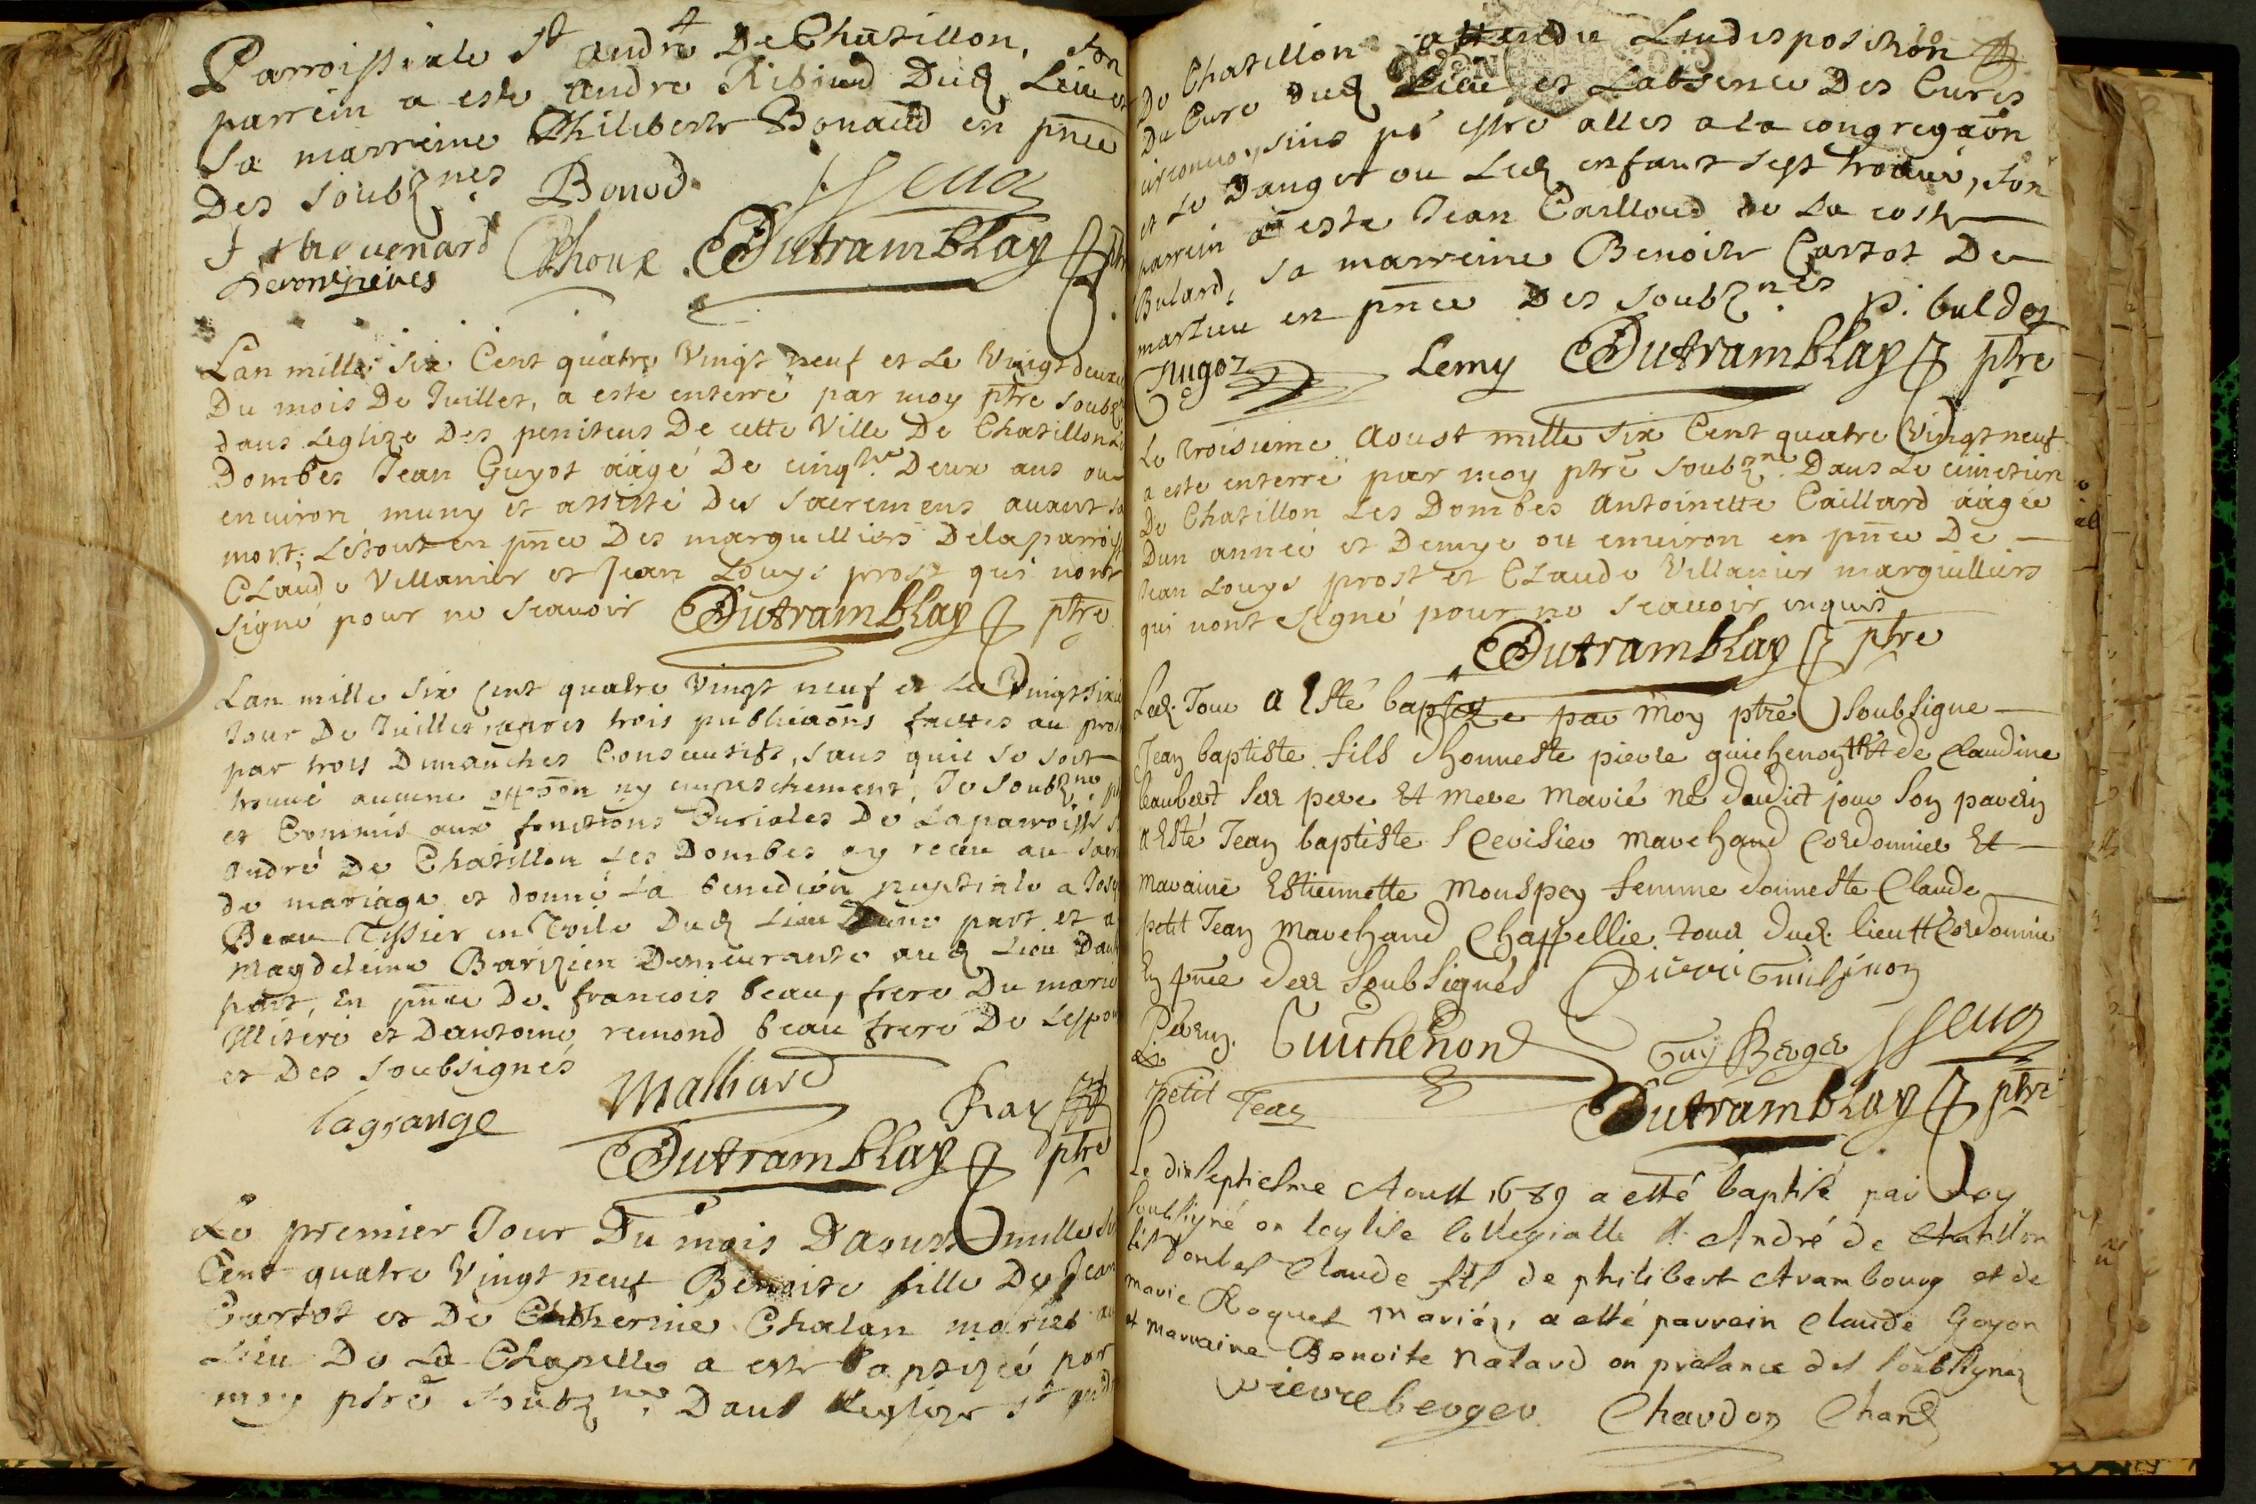 Parroissiale St andré De Chatillon, son
parrein a esté andré Riboud Dud. Lieu et
Sa marreine Philiberte Bonaud en pnce
Des soubz.nes Bonod
Choux Dutramblay ptre
Lan mille six Cent quatre Vingt neuf et Le Vingt deux
Du mois De Juillet, a este enterré par moy ptre soubz
dans Leglize Des penitens De cette Ville De Chatillon Les
Dombes Jean Guyot aagé De cinqte Deux ans ou
environ muny et assisté Des sacremens avant sa
mort; Letout en pnce Des marguilliers Delaparroisse
CLaude Villanier et Jean Louys prost qui nont
signé pour ne scauoir Dutramblay ptre
Lan mille six Cent quatre Vingt neuf et Le Vingt six
Jour De Juillet, apres trois publicaons faittes au pros
par trois Dimanches Consecutifs, sans quil se soit
trouué aucune oppoon ny empeschement, Je soubz.ne
et Commis aux fonctions Curiales De Laparroisse St
andré De Chatillon Les Dombes ay receu au sacre
de mariage et donné La benediction nuptiale a Josep
Beau Tissier en Toile Dud. Lieu Dune part et a
Magdeleine Barizien Demeurante aud. Lieu Daut
part, En pnce De francois beau, frere Du marié
Uterin et Dantoine remond beau frere De Lespou
et Des soubsignés
lagrange Malliard Ray
Dutramblay ptre
Le premier Jour Du mois Daoust mille six
Cent quatre Vingt neuf Benoite fille De Jean
Cartot et De Catherine Chalan mariés au
Lieu De La Chapelle a esté baptizée par
moy ptre soubz.ne Dans Leglize St andré
De Chatillon attendu Lindisposition
Du Cure dud. Lieu et Labsence Des Cures
circonuoysins pr estre alles a la congregaon
et Le Danger ou Led. enfant sest trouué, son
parrein a esté Jean Cailloud de La coste
Bulard, sa marreine Benoiste Cartot De
martieu en pnce Des soubz.nes p. buldoz
Lemy Dutramblay ptre
Le troisieme Aoust mille six Cent quatre Vingt neuf
a este enterré par moy ptre soubz.ne Dans Le cimetiere
De Chatillon Les Dombes Antoinette Caillard aagée
Dun année et Demye ou enuiron en pnce De
Jean Louys prost et CLaude Villanier marguilliers
qui nont signé pour ne scauoir enquis
Dutramblay ptre
Led. Jour a Esté baptizé par moy ptre soubsigne
Jean baptiste fils dhonneste pierre guichenon Et de Claudine
Jaubert ses pere Et mere Marié né dudict jour son parein
a Esté Jean baptiste Scerisier Marchand Cordonnier Et
Maraine Estiennette Monspey femme donneste Claude
petit Jean Marchand Chappellie tous dud. lieu Cordonnie
En pnce des soubsignés Pierre Guichenon
Guichenon Guy Berger
petit Jean Dutramblay ptre
Le dixseptiesme Aoust 1689 a esté baptisé par moy
soubsigné en leglise Collegialle St André de Chatillon
les dombes Claude fils de philibert Arambourg et de
marie Roquet mariéz, a esté parrein Claude Goyon
et marraine Benoite Nalard en presance des soubsignez
pierre berger Chardon Chané